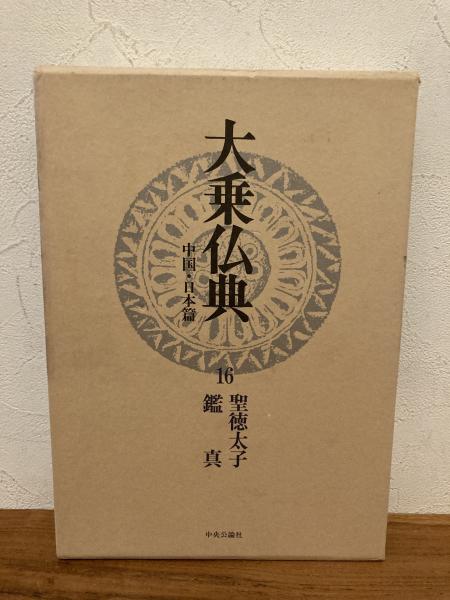 大乗仏典
中国・日本篇
16
聖徳太子
鑑真
中央公論社